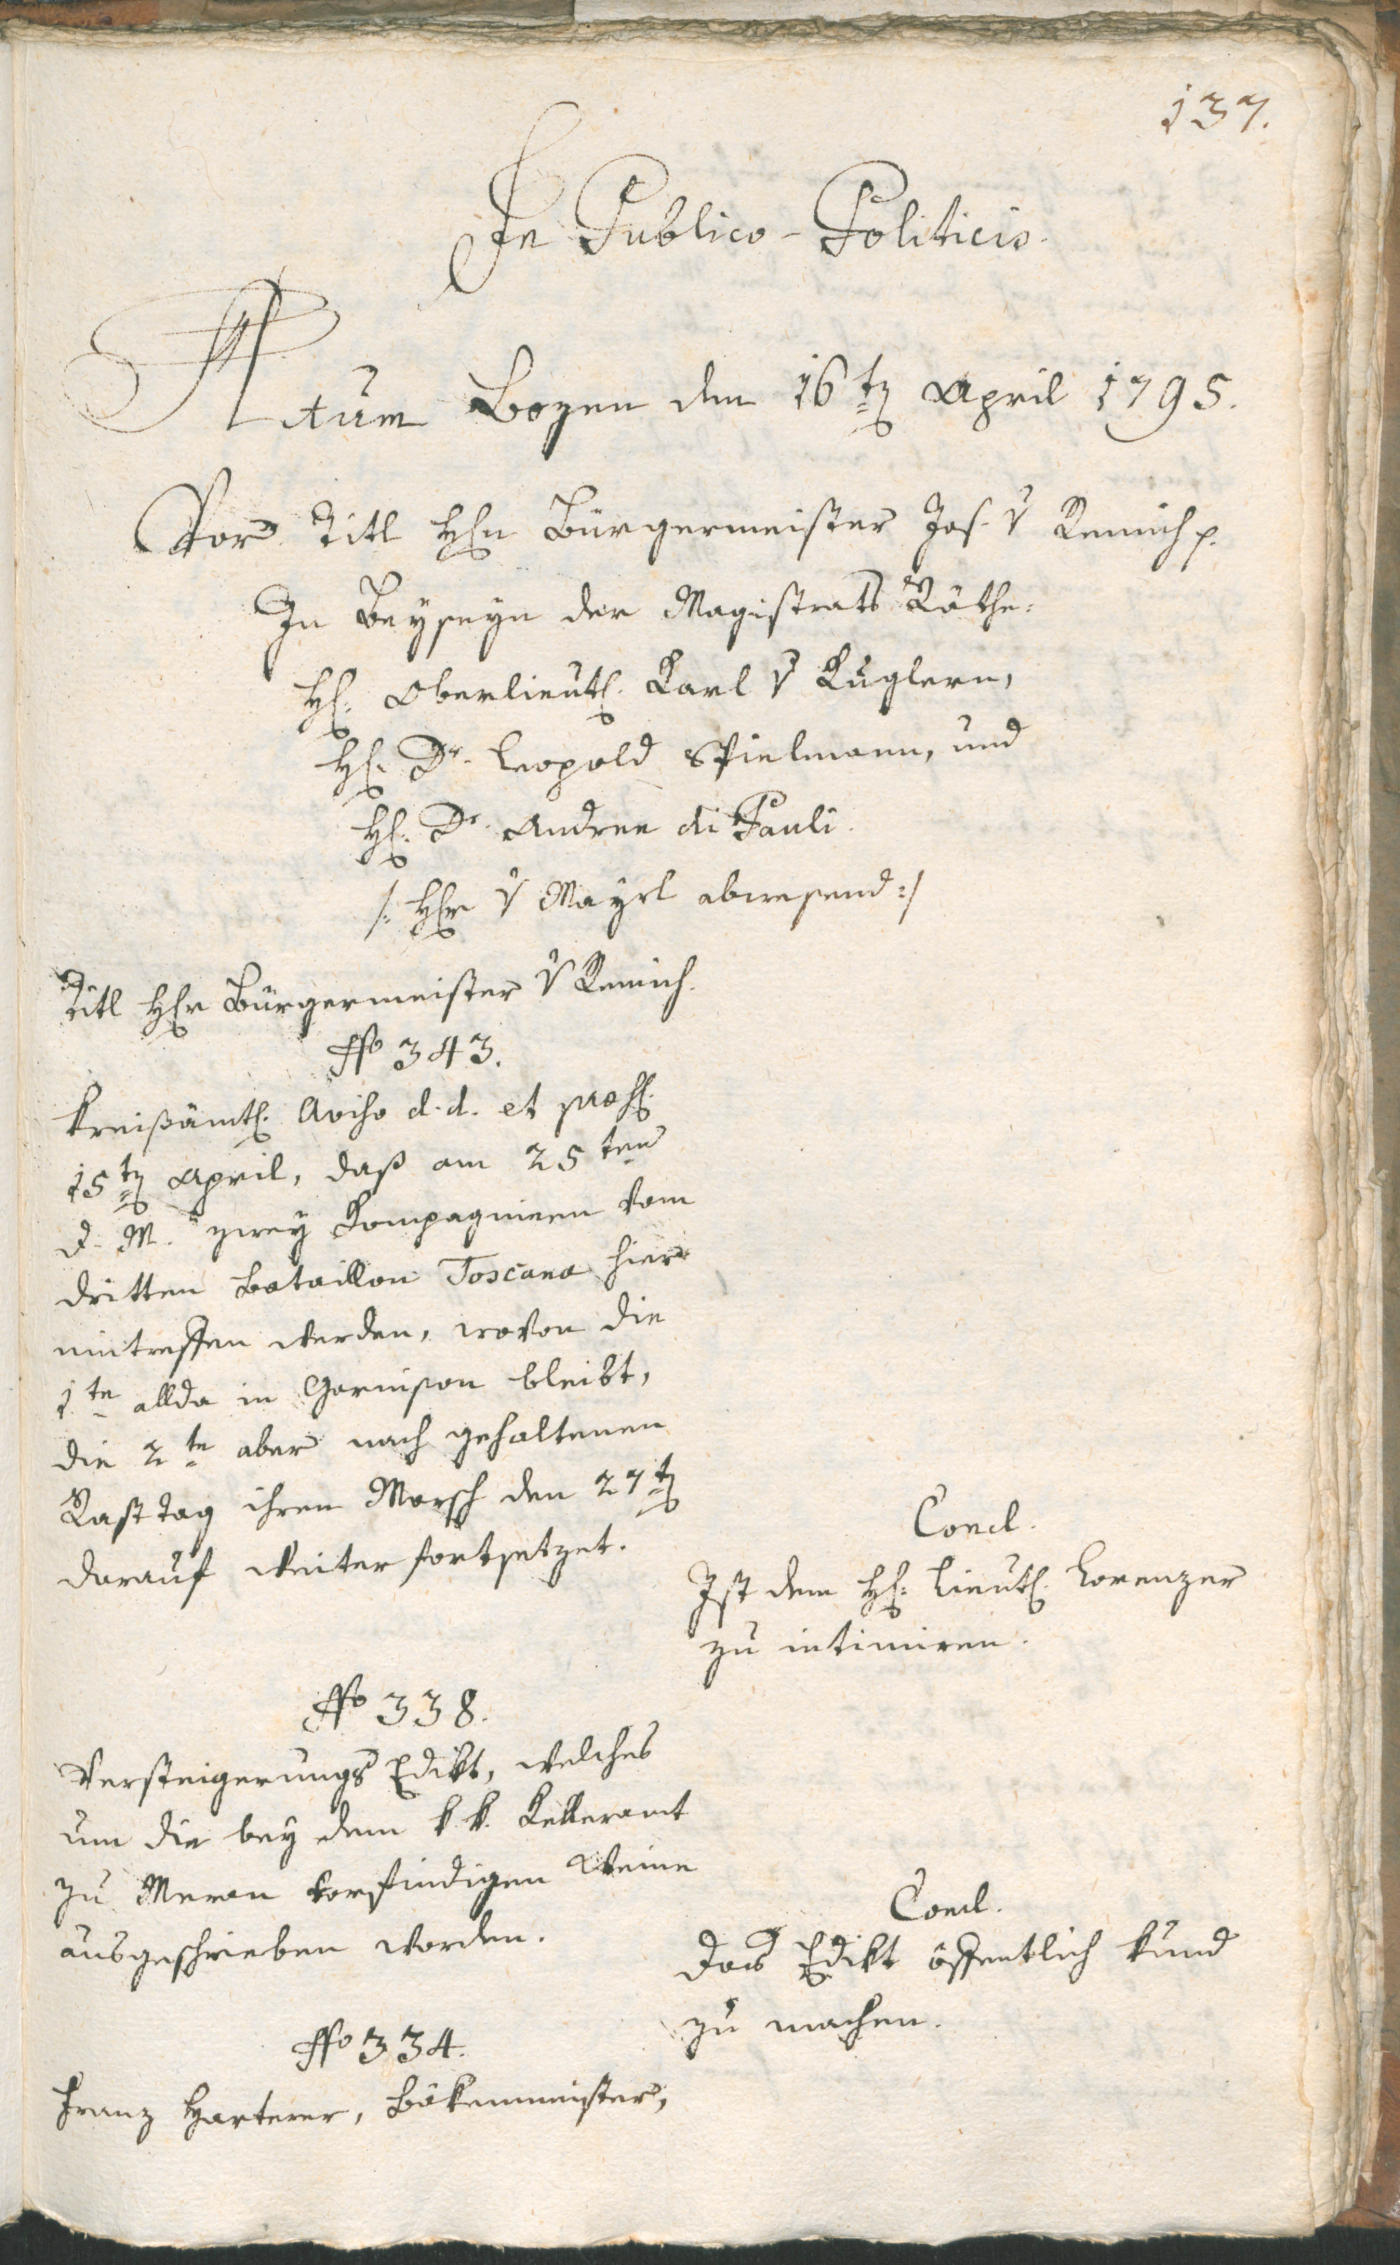 137.
In Publico-Politicis.
Actum Bozen den 16t. April 1795.
Vor Titl Hrn Bürgermeister Jos. v Remich p.
In Beyseyn der Magistrats Räthe:
H. Oberlieut. Karl v Kuglern,
H. Dr. Leopold Spielmann, und
H. Dr. Andree di Pauli.
/: Hr v Mayrl abwesend :/
Titl Hr Bürgermeister v Remich.
No 343.
Kreißämtl. Aviso d. d. et praes.
15t. April, daß am 25ten
d. M. zwey Kompagnieen vom
dritten Bataillon Toscana hier
eintreffen werden, wovon die
1te allda in Garnison bleibt,
die 2te aber nach gehaltenen
Rasttag ihren Marsch den 27t.
darauf weiter fortsetzet.
Concl.
Ist dem H. Lieut. Lorenzer
zu intimiren.
No 338.
Versteigerungs Edikt, welches
um die bey dem k. k. Kelleramt
zu Meran vorfindigen Weine
ausgeschrieben worden.
Concl.
Das Edikt öffentlich kund
zu machen.
No 334.
Franz Harterer, Bäkenmeister,